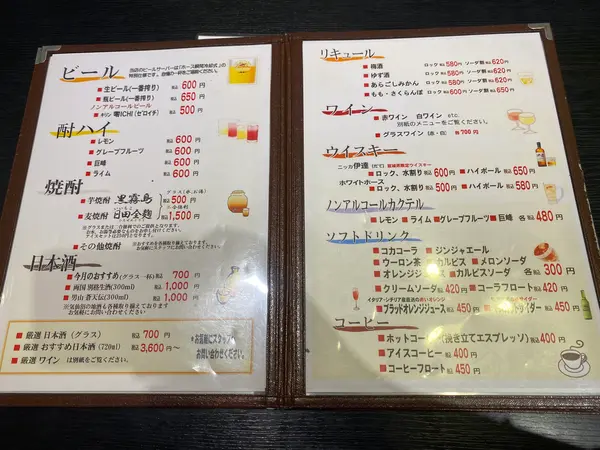 ビール
当店のビールサーバーは「ホース瞬間冷却式」の
特別仕様です。自慢の一杯をご堪能ください。
■生ビール(一番搾り) 税込 600 円
■瓶ビール(一番搾り) 税込 650 円
ノンアルコールビール
■キリン 零ICHI (ゼロイチ) 税込 500 円
酎ハイ
■レモン 税込 600 円
■グレープフルーツ 税込 600 円
■巨峰 税込 600 円
■ライム 税込 600 円
焼酎
グラス(水、お湯)
■芋焼酎 黒霧島 税込 500 円
■麦焼酎 税込 1,500 円
■その他焼酎
日本酒
■今月のおすすめ (グラス一杯) 税込 700 円
■両国 別格生酒(300ml) 税込 1,000 円
■男山 蒼天伝(300ml) 税込 1,000 円
※気仙沼の地酒も各種取り揃えております
お気軽にお問い合わせください
■厳選 日本酒 (グラス) 税込 700 円
■厳選 おすすめ日本酒 (720ml) 税込 3,600 円〜
■厳選 ワイン は別紙をご覧ください。
*お気軽にスタッフへ
お問い合わせください
リキュール
■梅酒 ロック 税込 580円 ソーダ割 税込 620円
■ゆず酒 ロック 税込 580円 ソーダ割 税込 620円
■あらごしみかん ロック 税込 580円 ソーダ割 税込 620円
■もも・さくらんぼ ロック 税込 600円 ソーダ割 税込 650円
ワイン
■赤ワイン 白ワイン etc.
別紙のメニューをご覧ください。
■グラスワイン (赤・白) 各 700 円
ウイスキー
ニッカ 伊達 (だて) 宮城県限定ウイスキー
■ロック、水割り 税込 600円 ■ハイボール 税込 650 円
ホワイトホース
■ロック、水割り 税込 500円 ■ハイボール 税込 580 円
ノンアルコールカクテル
■レモン ■ライム ■グレープフルーツ ■巨峰 各 税込 480 円
ソフトドリンク
■コカコーラ ■ジンジャエール
■ウーロン茶 ■カルピス ■メロンソーダ
■オレンジジュース ■カルピスソーダ 各 税込 300 円
■クリームソーダ 税込 420 円 ■コーラフロート 税込 420 円
イタリア・シチリア島産活の赤いオレンジ
■ブラッドオレンジジュース 税込 450 円 サイダー 税込 450 円
コーヒー
■ホットコーヒー (挽き立てエスプレッソ) 税込 400 円
■アイスコーヒー 税込 400 円
■コーヒーフロート 税込 450 円